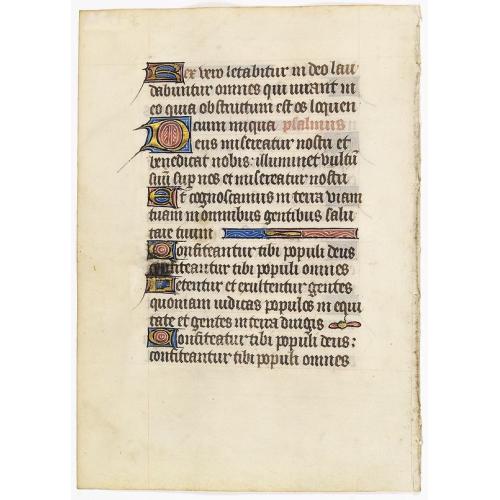 Rex vero letabitur in deo lau
dabuntur omnes qui iurant in
eo quia obstructum est os loquen
cium iniqua psalmus
Deus misereatur nostri et
benedicat nobis: illuminet vultū
suū sup nos et misereatur nostri
Et cognoscamus in terra viam
tuam in omnibus gentibus salu
tare tuum
Confiteantur tibi populi deus
confiteantur tibi populi omnes
Letentur et exultentur gentes
quoniam iudicas populos in equi
tate et gentes in terra dirigis
Confiteatur tibi populi deus:
confiteantur tibi populi omnes